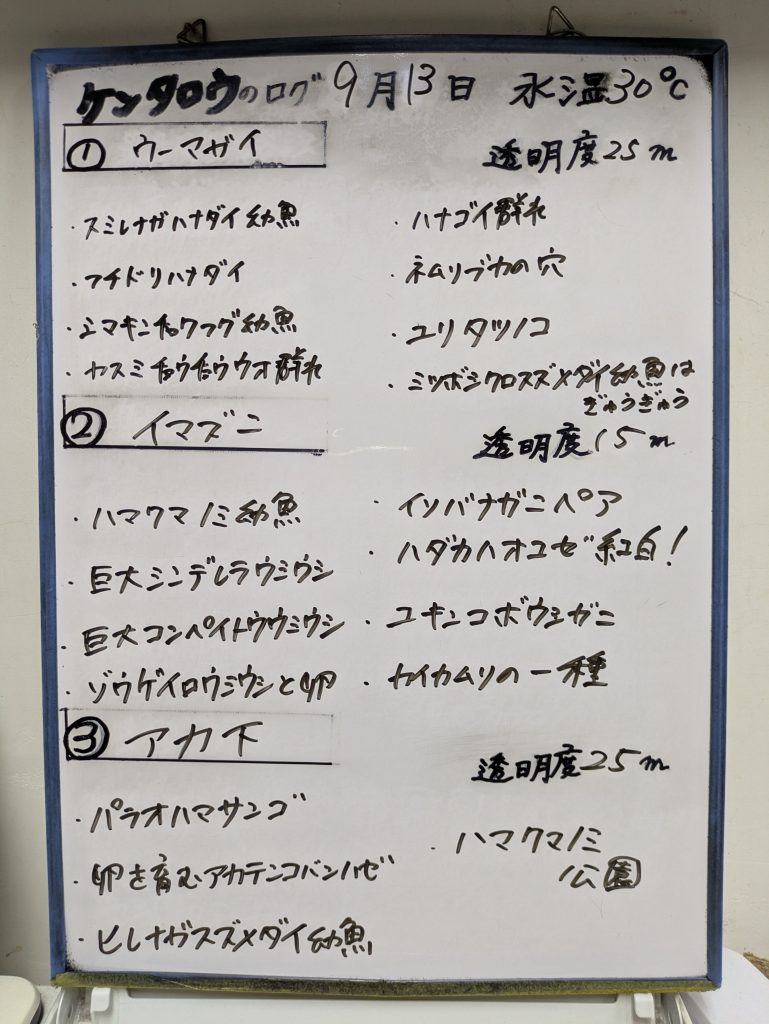 ケンタロウのログ 9月13日 水温30℃
① ウーマガイ
透明度25m
・スミレナガハナダイ幼魚
・フチドリハナダイ
・シマキンチャクフグ幼魚
・カスミチョウチョウウオ群れ
・ハナゴイ群れ
・ネムリブカの穴
・ユリタツノコ
・ミツボシクロスズメダイ幼魚は
ぎゅうぎゅう
② イマズニ
透明度15m
・ハマクマノミ幼魚
・巨大シンデレラウミウシ
・巨大コンペイトウウミウシ
・ゾウゲイロウミウシと卵
・イソバナガニペア
・ハダカハオコゼ紅白!
・ユキンコボウシガニ
・カイカムリの一種
③ アカ下
透明度25m
・パラオハマサンゴ
・卵を育むアカテンコバンハゼ
・ヒレナガスズメダイ幼魚
・ハマクマノミ
公園